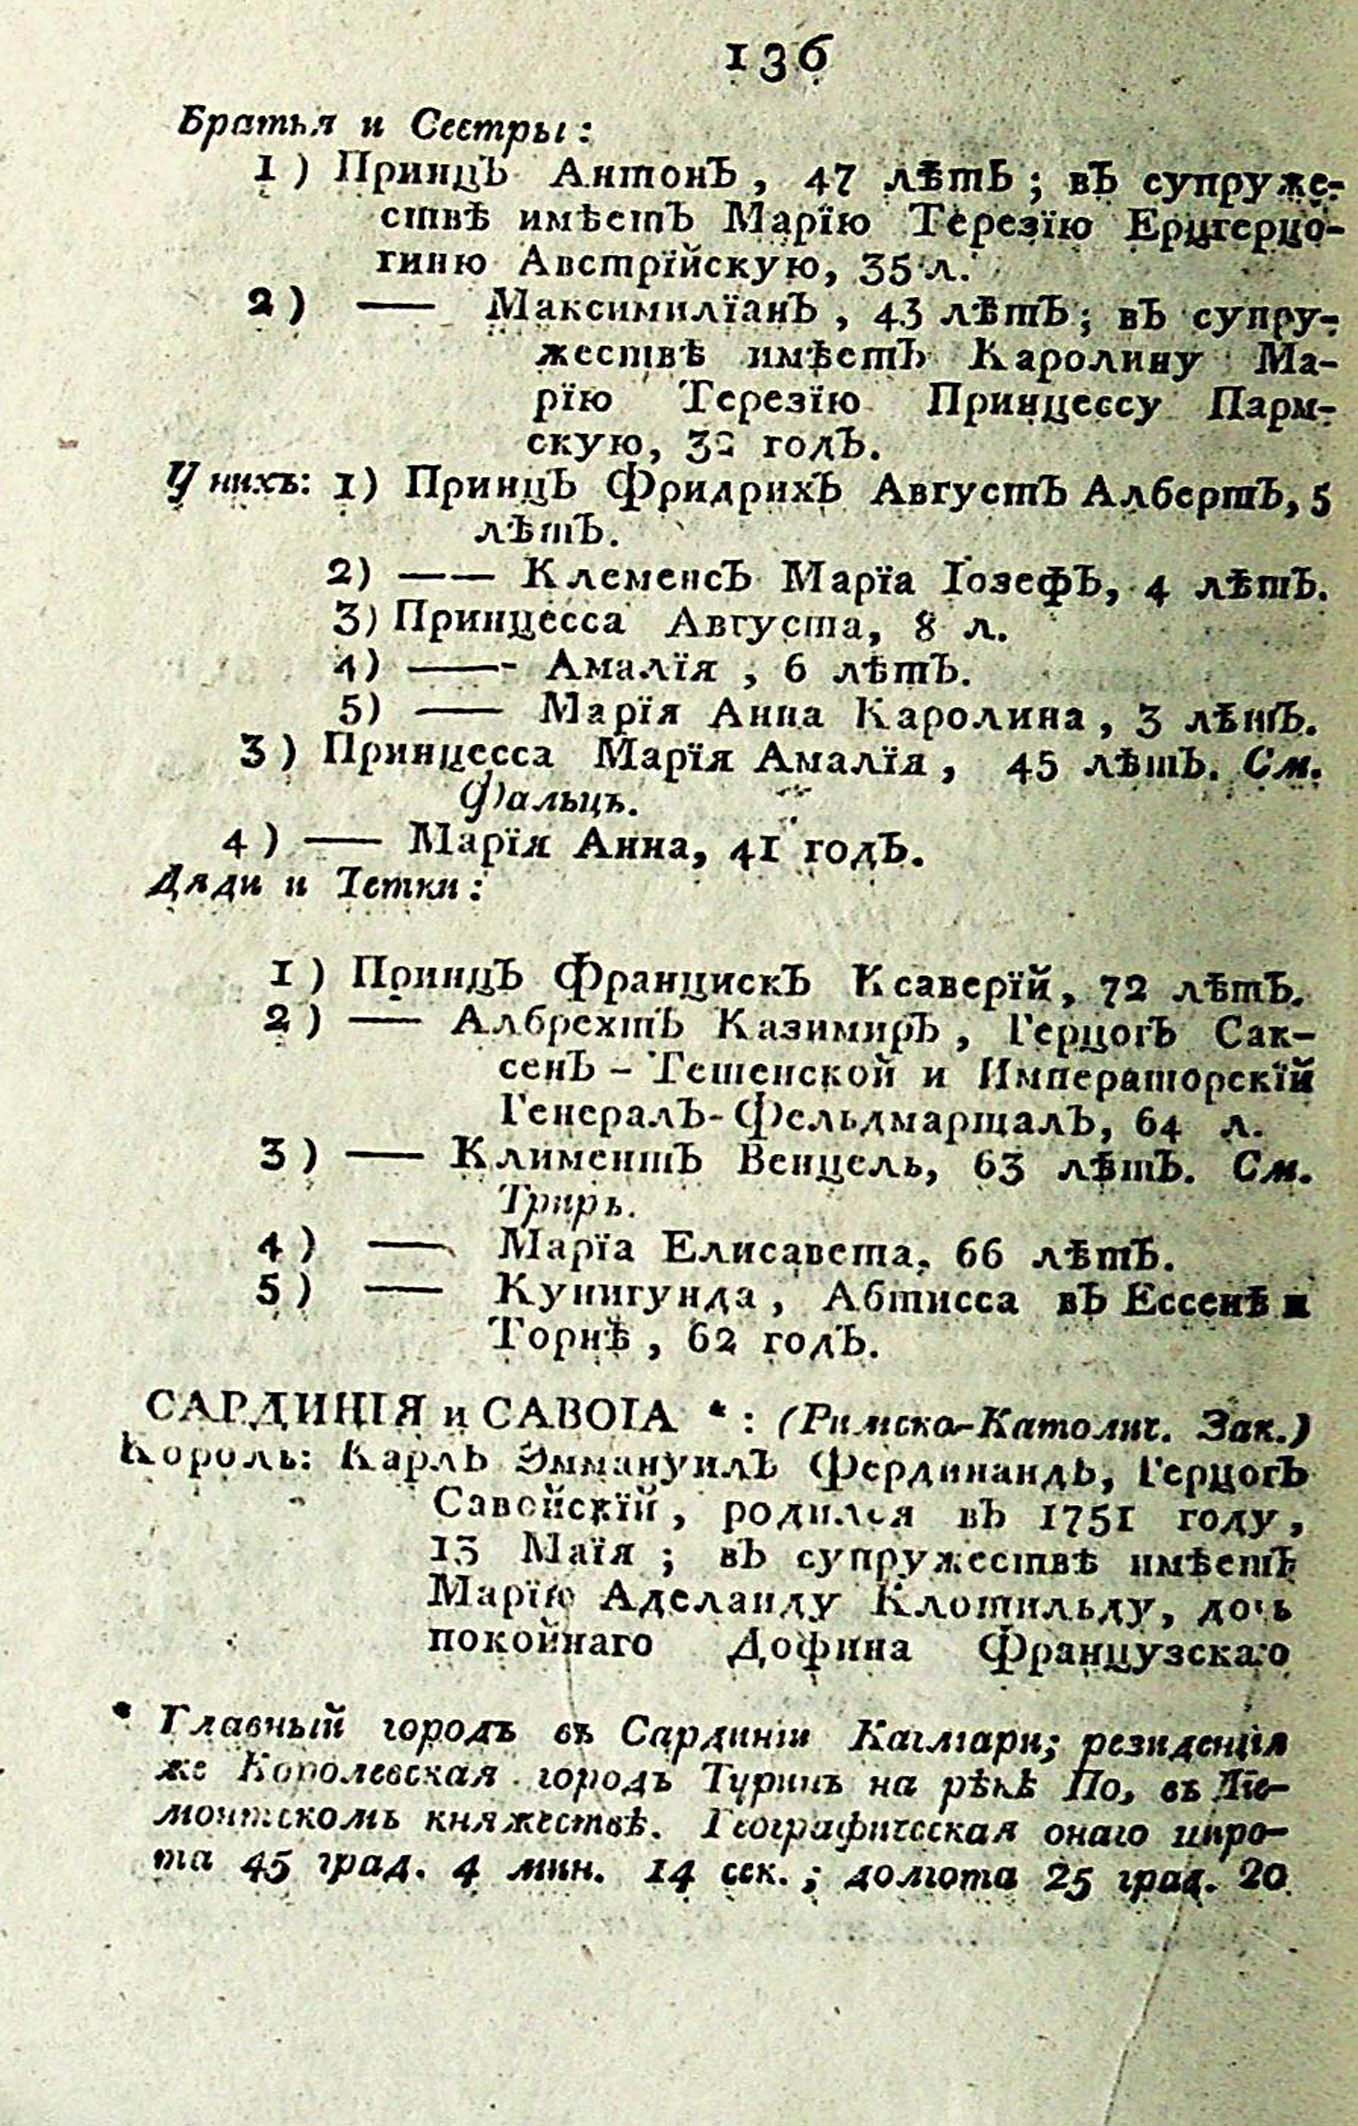 136
Братья и Сестры:
1) Принцъ Антонъ, 47 лѣтъ; въ супруже-
ствѣ имѣетъ Марїю Терезїю Ерцгерцо-
гиню Австрїйскую, 35 л.
2) —— Максимилїанъ, 43 лѣтъ; въ супру-
жествѣ имѣетъ Каролину Ма-
рїю Терезїю Принцессу Парм-
скую, годъ.
У нихъ: 1) Принцъ Фридрихъ Августъ Албертъ, 5
лѣтъ.
2) —— Клеменсъ Марїа Іозефъ, 4 лѣтъ.
3) Принцесса Августа, 8 л.
4) —— Амалїя, 6 лѣтъ.
5) —— Марїя Анна Каролина, 3 лѣтъ.
3) Принцесса Марїя Амалїя, 45 лѣтъ. См.
Фальцъ.
4) —— Марїя Анна, 41 годъ.
Дяди и Тетки:
1) Принцъ Францискъ Ксаверїй, 72 лѣтъ.
2) —— Албрехтъ Казимиръ, Герцогъ Сак-
сенъ-Тешенской и Императорскїй
Генералъ-Фельдмаршалъ, 64 л.
3) —— Климентъ Венцель, 63 лѣтъ. См.
Триръ.
4) —— Марїа Елисавета, 66 лѣтъ.
5) —— Кунигунда, Абтисса въ Ессенѣ и
Торнѣ, 62 годъ.
САРДИНІЯ и САВОІА *: (Римско-Католич. Зак.)
Король: Карлъ Эммануилъ Фердинандъ, Герцогъ
Савойскїй, родился въ 1751 году,
13 Маїя; въ супружествѣ имѣетъ
Марїю Аделаиду Клотильду, дочь
покойнаго Дофина Французскаго
* Главный городъ въ Сардиніи Каглїари; резиденція
же Королевская городъ Туринъ на рѣкѣ По, въ Піе-
монтскомъ княжествѣ. Географическая онаго широ-
та 45 град. 4 мин. 14 сек.; долгота 25 град. 20